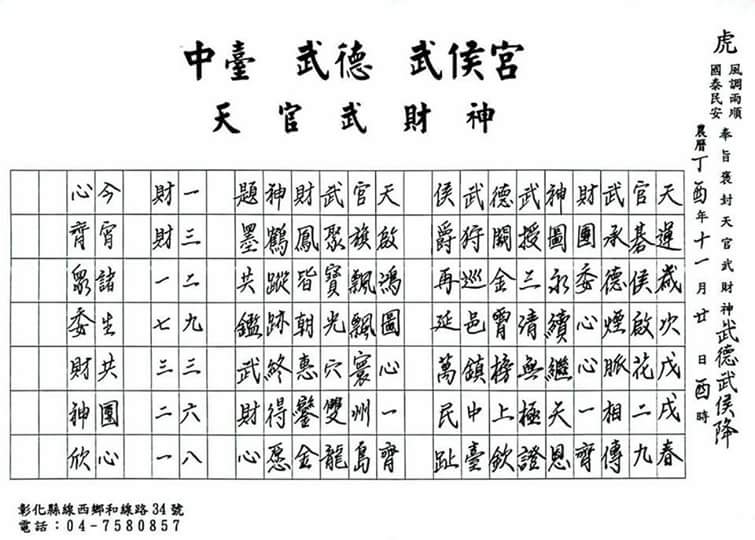 中臺 武德 武侯宮
天官武財神
虎
風調雨順
國泰民安
奉旨褒封天官武財神武德武侯降
農曆丁酉年十一月廿日酉時
天運歲次戊戌春
官碁侯啟花二九
武承德煙脈相傳
財團委心心一齊
神圖永續繼天恩
武授三清無極證
德關金霄榜上欽
武狩巡邑鎮中臺
侯爵再延萬民趾
天啟鴻圖心一齊
官旗飄飄寰州島
武聚寶光穴雙龍
財鳳皆朝惠鑒金
神鶴蹤跡終得愿
題墨共鑑武財心
一三二九三六八
財財一七三二一
今宵諸生共團心
心齊眾委財神欣
彰化縣線西鄉和線路34號
電話：04-7580857